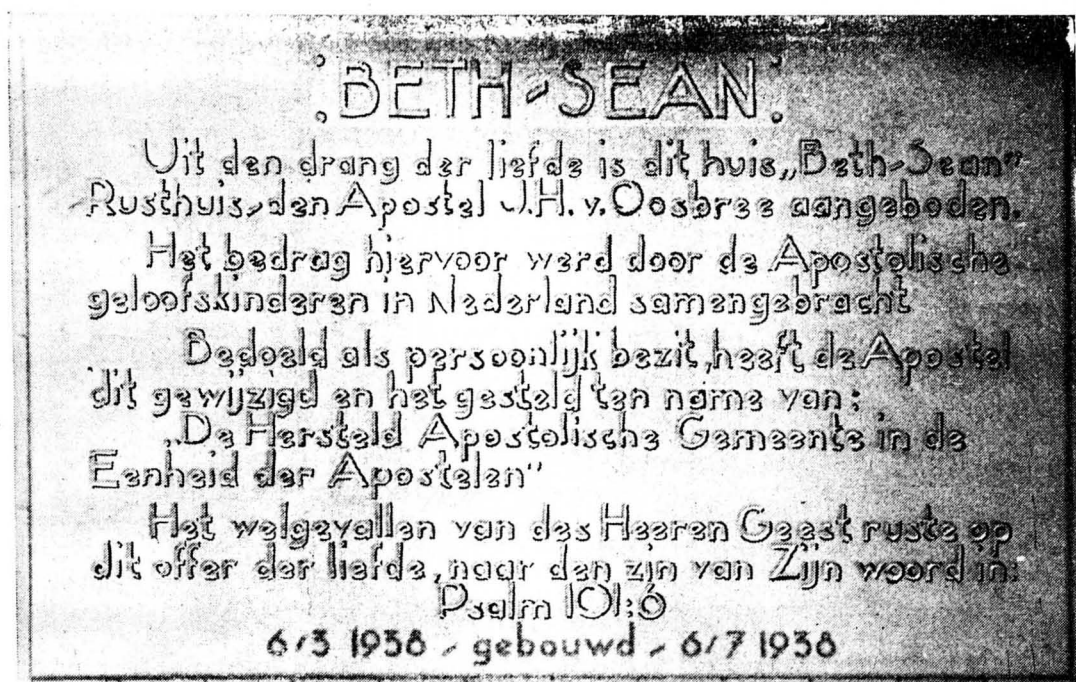 :BETH-SEAN:
Uit den drang der liefde is dit huis „Beth-Sean"
Rusthuis, den Apostel J.H. v. Oosbree aangeboden.
Het bedrag hiervoor werd door de Apostolische
geloofskinderen in Nederland samengebracht
Bedoeld als persoonlijk bezit, heeft de Apostel
dit gewijzigd en het gesteld ten name van:
„De Hersteld Apostolische Gemeente in de
Eenheid der Apostelen"
Het welgevallen van des Heeren Geest ruste op
dit offer der liefde, naar den zin van Zijn woord in:
Psalm 101:6
6/3 1938 - gebouwd - 6/7 1938